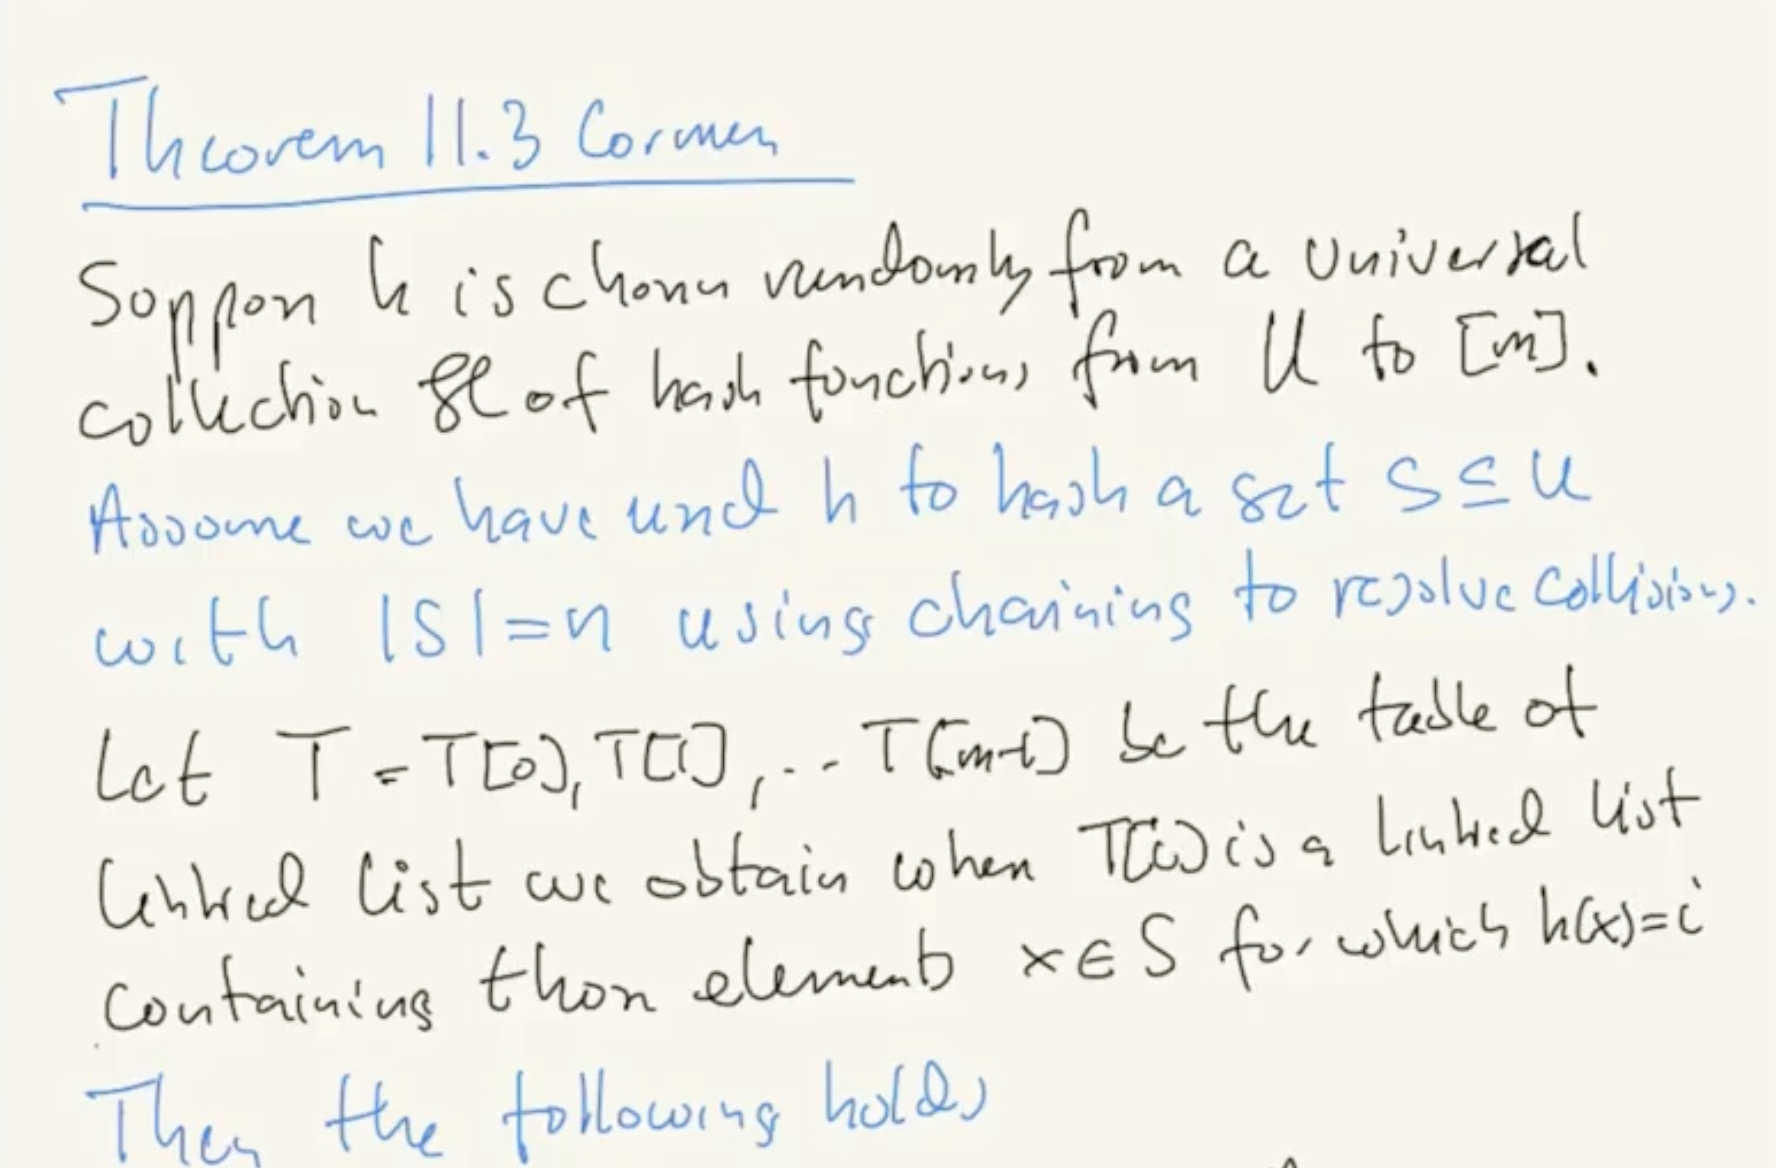 Theorem 11.3 Cormen
Suppose h is chosen randomly from a universal
collection ℋ of hash functions from U to [m].
Assume we have used h to hash a set S ⊆ U
with |S| = n using chaining to resolve collisions.
Let T = T[0], T[1], ... T[m-1] be the table of
linked list we obtain when T[i] is a linked list
containing those elements x ∈ S for which h(x) = i
Then the following holds